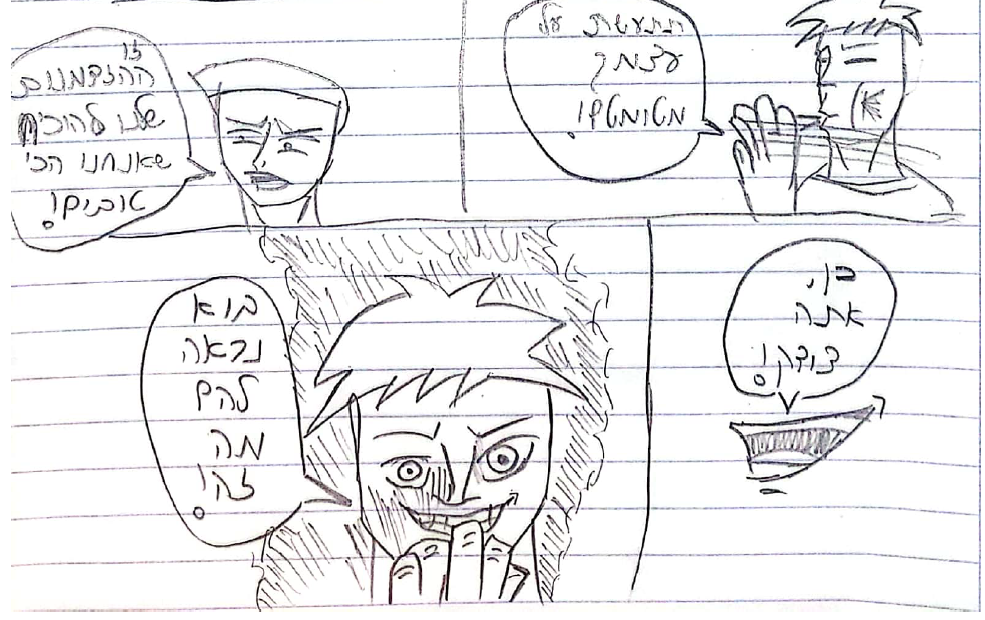 תתעשת על
עצמך
מטומטם!
זו
ההזדמנות
שלנו להוכיח
שאנחנו הכי
טובים!
כן,
אתה
צודק!
בוא
נראה
להם
מה
זה!